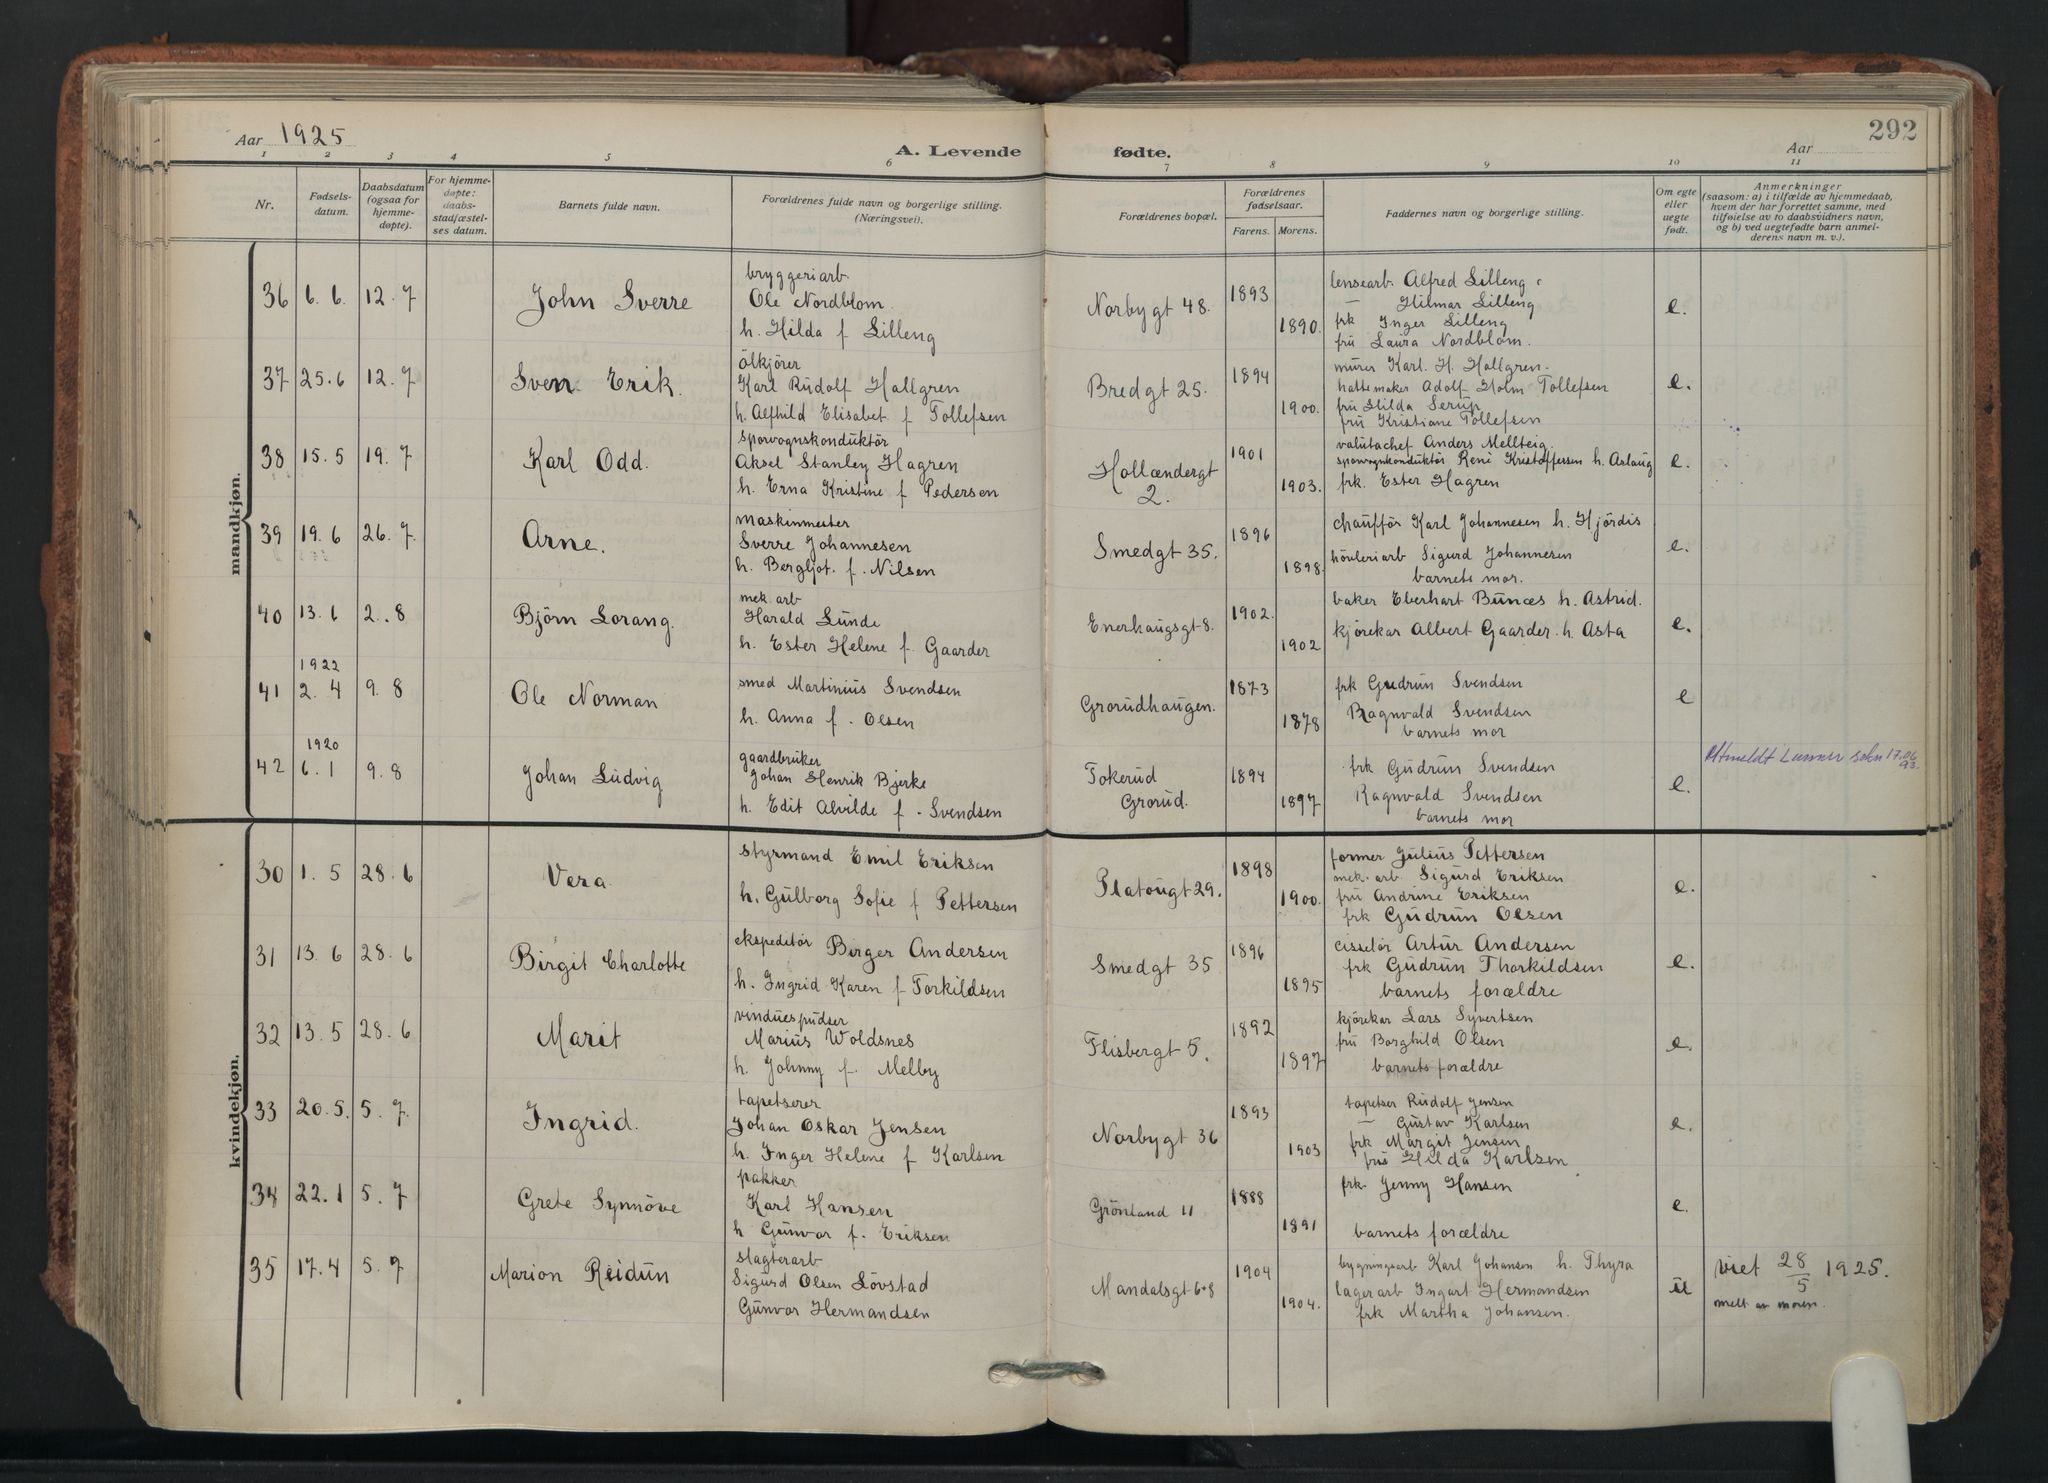 292
Aar 1925
A. Levende fødte.
Aar
1 2 3 4 5 6 7 8 9 10 11
Nr.
Fødsels-
datum.
Daabsdatum
(ogsaa for
hjemme-
døpte).
For hjemme-
døpte:
daabs-
stadfæstel-
ses datum.
Barnets fulde navn.
Forældrenes fulde navn og borgerlige stilling.
(Næringsvei).
Forældrenes bopæl.
Forældrenes
fødselsaar.
Farens. Morens.
Faddernes navn og borgerlige stilling.
Om egte
eller
uegte
født.
Anmerkninger
(saasom: a) i tilfælde av hjemmedaab,
hvem der har forrettet samme, med
tilføielse av to daabsvidners navn,
og b) ved uegtefødte barn anmel-
derens navn m. v.).
mandkjøn.
36 6.6. 12.7
John Sverre
bryggeriarb.
Ole Nordblom.
h. Hilda f Lilleng
Norbygt 48.
1893
1890.
lensearb Alfred Lilleng
— Hilmar Lilleng
frk Inger Lilleng
fru Laura Nordblom.
e.
37 25.6 12.7
Sven Erik.
ølkjører
Karl Rudolf Hallgren
h. Alfhild Elisabet f Tollefsen
Bredgt 25.
1894
1900.
murer Karl. H. Hallgren.
hattemaker Adolf Holm Tollefsen
fru Hilda Serup
fru Kristiane Tollefsen
e.
38 15.5 19.7
Karl Odd.
sporvognskonduktör
Aksel Stanley Hagren
h. Erna Kristine f Pedersen
Hollændergt
2.
1901
1903.
valutachef Anders Mellteig.
sporvognkonduktör René Kristoffersen h. Aslaug
frk. Ester Hagren
e.
39 19.6 26.7.
Arne.
maskinmester
Sverre Johannesen
h. Bergljot. f. Nilsen
Smedgt 35.
1896
1898.
chaufför Karl Johannesen h. Hjördis
hövleriarb Sigurd Johannesen
barnets mor.
e.
40 13.6 2.8
Björn Lorang.
mek. arb
Harald Lunde
h. Ester Helene f. Gaarder
Enerhaugsgt 8.
1902.
1902
baker Eberhart Bunæs h. Astrid.
kjörekar Albert Gaarder. h. Asta
e.
1922
41 2.4 9.8
Ole Norman
smed Martinius Svendsen
h. Anna f. Olsen
Grorudhaugen.
1873
1878
frk Gudrun Svendsen
Ragnvald Svendsen
barnets mor
e
1920
42 6.1 9.8
Johan Ludvig
gaardbruker
Johan Henrik Bjerke
h. Edit Alvilde f. Svendsen
Tokerud
Grorud.
1894
1897
frk Gudrun Svendsen
Ragnvald Svendsen
barnets mor
e.
Utmeldt Lunner sokn 17.06
93.
kvindekjøn.
30 1.5 28.6
Vera.
styrmand Emil Eriksen
h. Gulborg Sofie f Pettersen
Platougt 29.
1898
1900.
former Julius Pettersen
mek. arb. Sigurd Eriksen
fru Andrine Eriksen
frk Gudrun Olsen
e.
31 13.6 28.6
Birgit Charlotte
ekspeditör Birger Andersen
h. Ingrid Karen f Torkildsen
Smedgt 35
1896
1895
ciselör Artur Andersen
frk Gudrun Thorkildsen
barnets forældre
e.
32 13.5 28.6
Marit
vinduespudser
Marius Woldsnes
h. Johnny f. Melby
Flisbergt 5.
1892
1897
kjörekar Lars Syvertsen
fru Borghild Olsen
barnets forældre
e.
33 20.5. 5.7.
Ingrid.
tapetserer
Johan Oskar Jensen
h. Inger Helene f Karlsen
Norbygt 36
1893
1903
tapetser Rudolf Jensen
— Gustav Karlsen
frk Margit Jensen
fru Hilda Karlsen
e.
34 22.1 5.7
Grete Synnöve
pakker
Karl Hansen
h Gunvor f. Eriksen
Grönland 11
1888
1891
frk. Jenny Hansen
barnets forældre
e.
35 17.4 5.7
Marion Reidun
slagterarb
Sigurd Olsen Lövstad
Gunvor Hermandsen
Mandalsgt 6-8
1904
1904.
bygningsarb Karl Johansen h. Thyra
lagerarb Ingart Hermandsen
frk Martha Johansen.
u
viet 28/5 1925.
melt av moren.